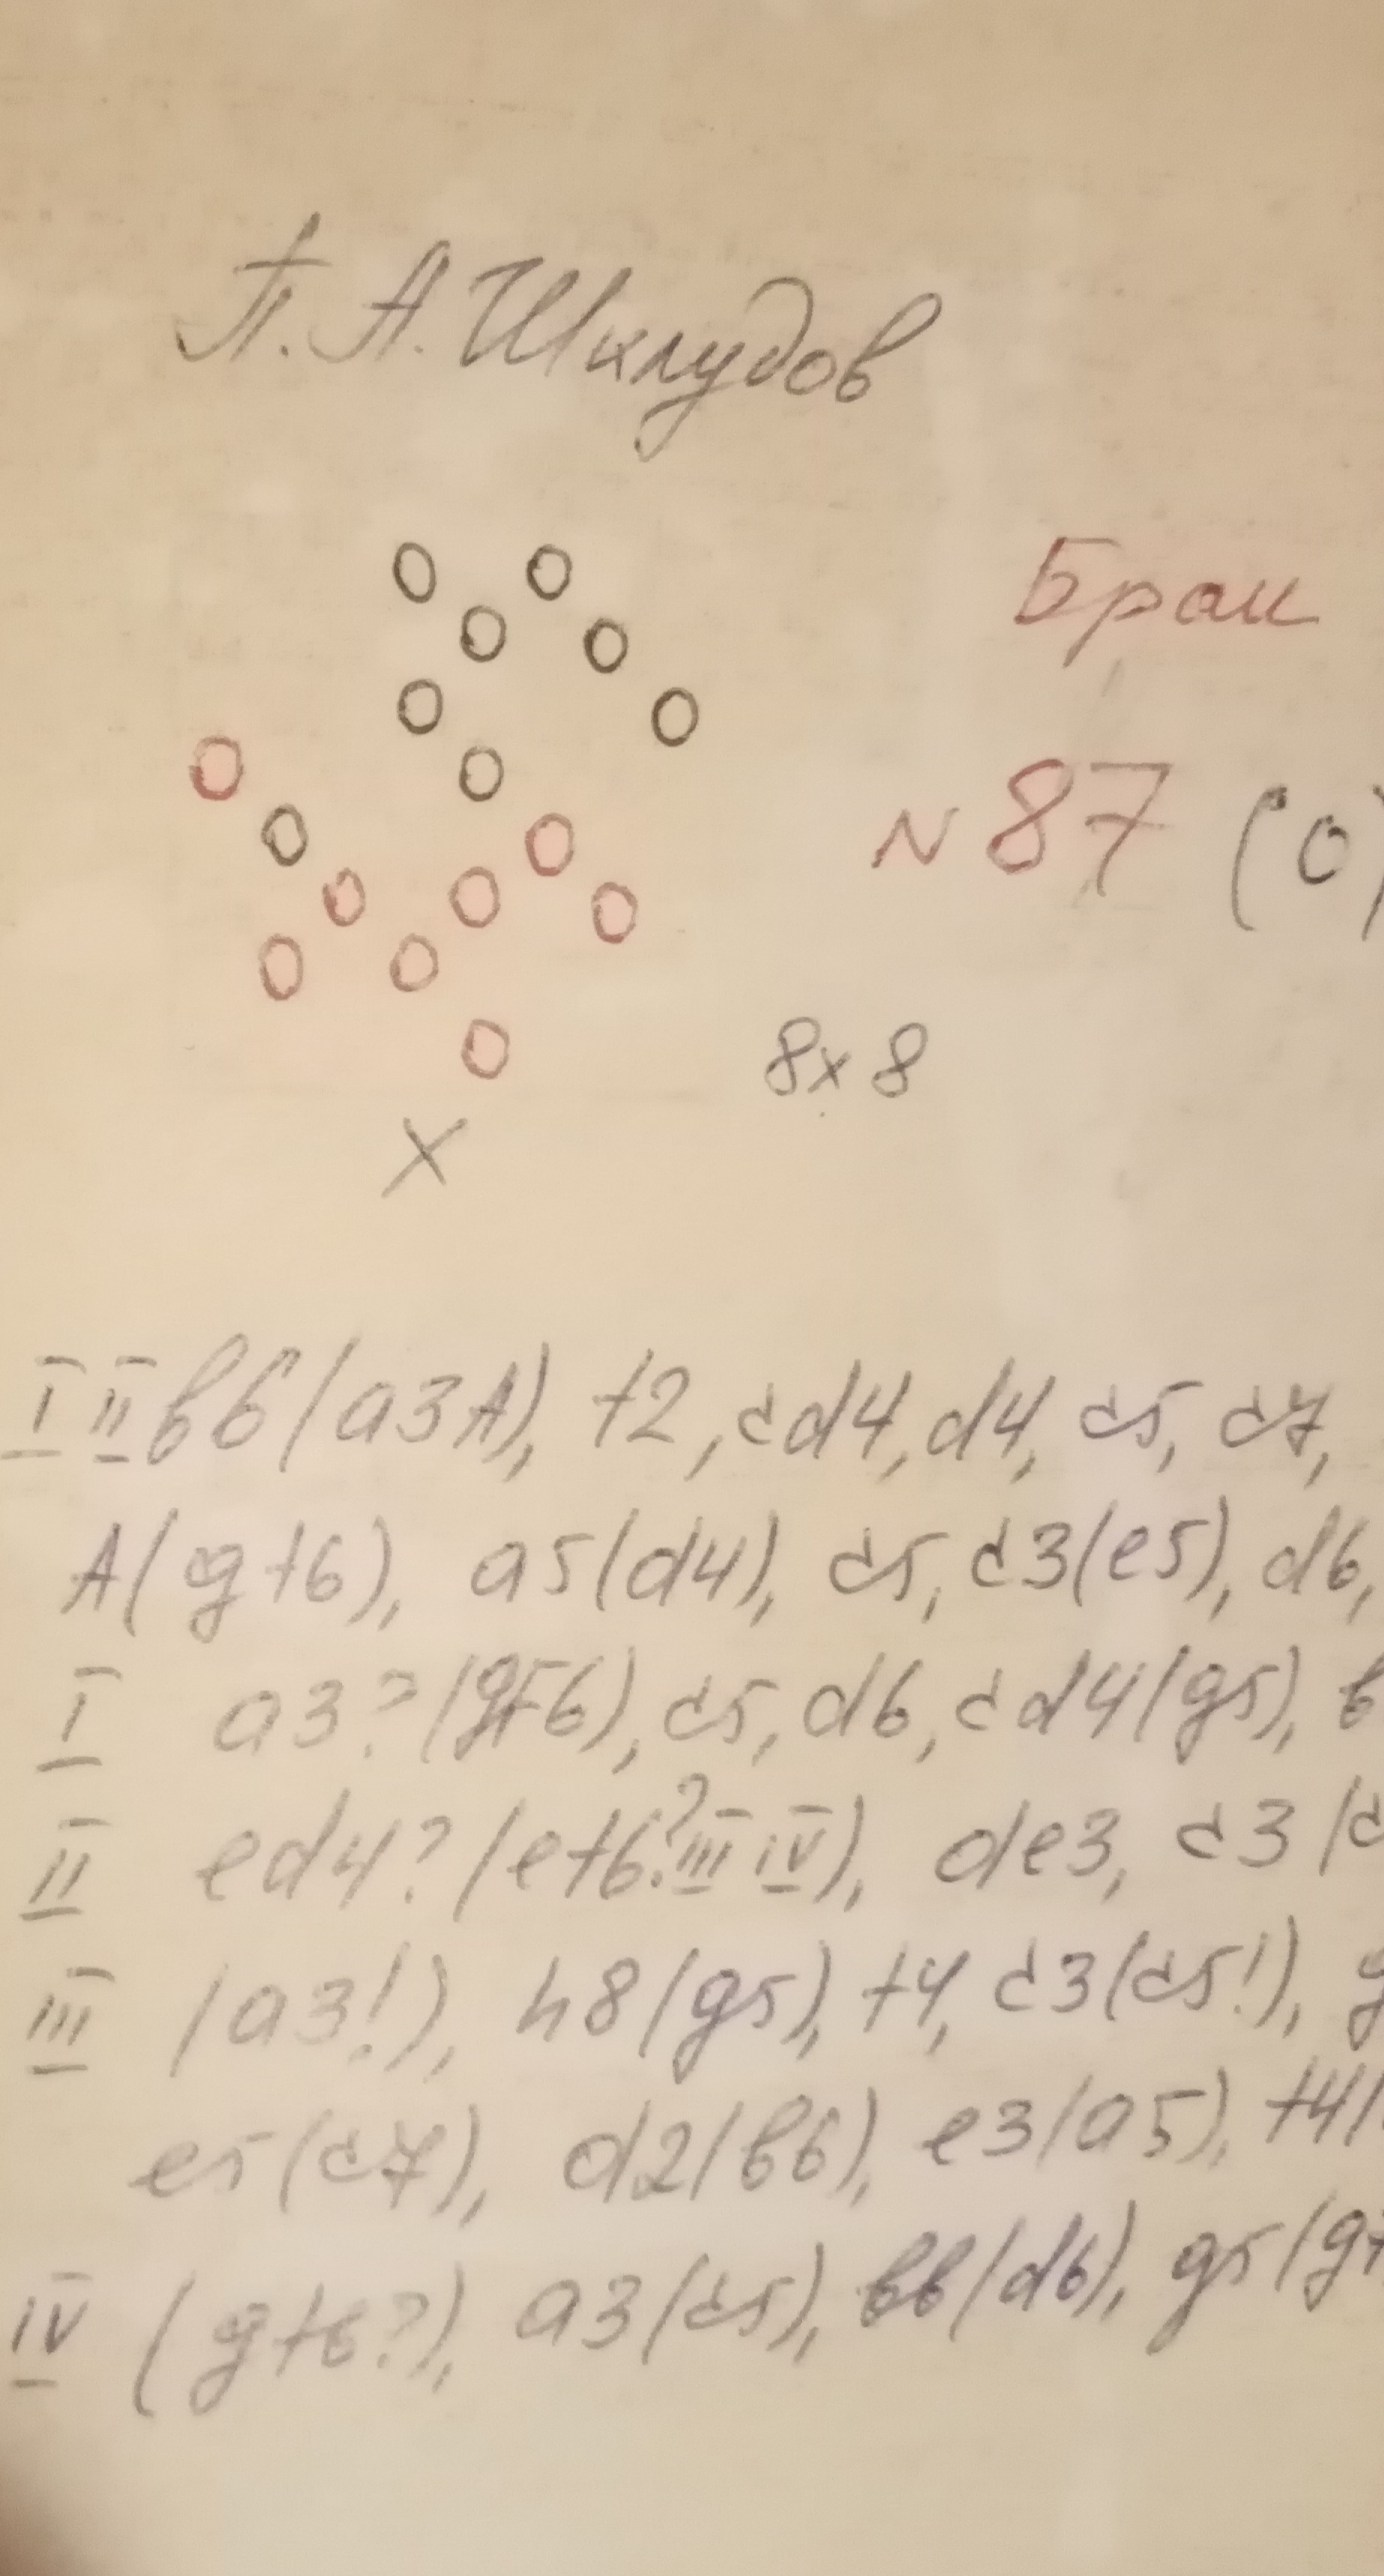 П. А. Шклудов
Брак
N 87 (0)
8x8
X
I II b6(a3A), f2, cd4, d4, c5, c7,
A(gf6), a5(d4), c5, c3(e5), d6,
I a3?(gf6), c5, d6, cd4(g5), b
II ed4?(ef6? III IV), de3, c3(c
III (a3!), h8(g5), f4, c3(c5!), g
e5(c7), d2(b6), e3(a5), f4(
IV (gf6?), a3(c5), b6(d6), g5(g